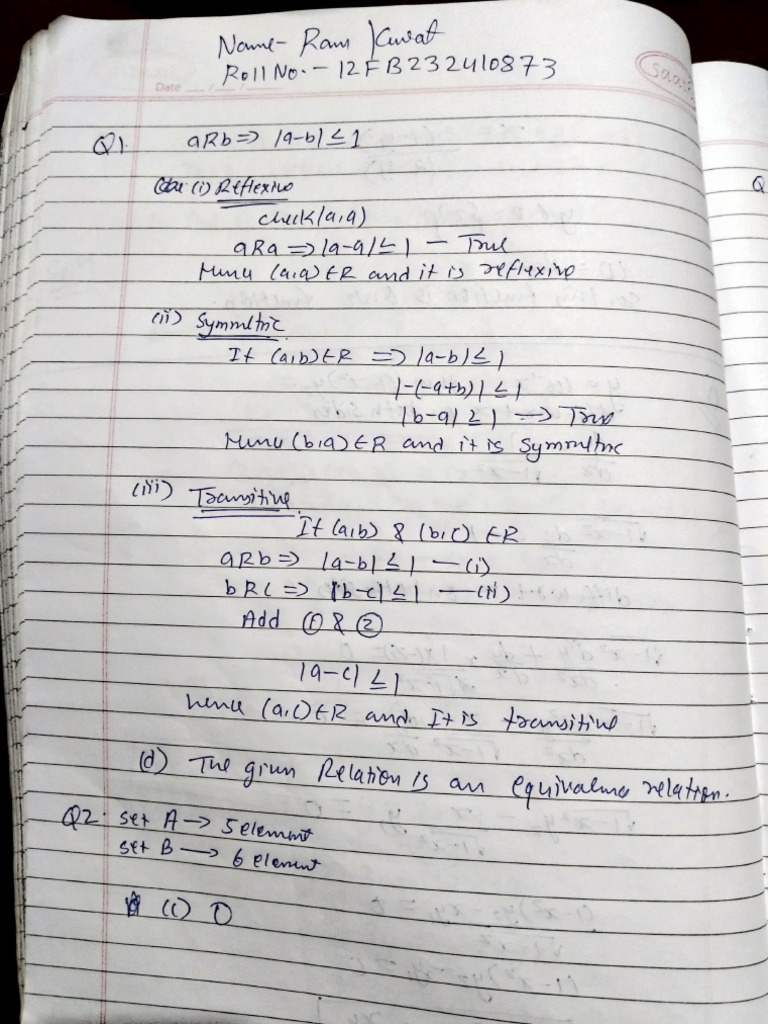 Name- Ram Kuwat
Roll No.- 12FB232410873
Date
Saathi
Q1. aRb ⇒ |a-b| ≤ 1
(i) Reflexive
check (a,a)
aRa ⇒ |a-a| ≤ 1 - True
Hence (a,a) ∈ R and it is reflexive
(ii) Symmetric
If (a,b) ∈ R ⇒ |a-b| ≤ 1
|-(-a+b)| ≤ 1
|b-a| ≥ 1 → True
Hence (b,a) ∈ R and it is Symmetric
(iii) Transitive
If (a,b) & (b,c) ∈ R
aRb ⇒ |a-b| ≤ 1 -(i)
bRc ⇒ |b-c| ≤ 1 -(ii)
Add ① & ②
|a-c| ≤ 1
hence (a,c) ∈ R and It is transitive
(d) The given Relation is an equivalence relation.
Q2. set A → 5 element
set B → 6 element
(c) 0
Q